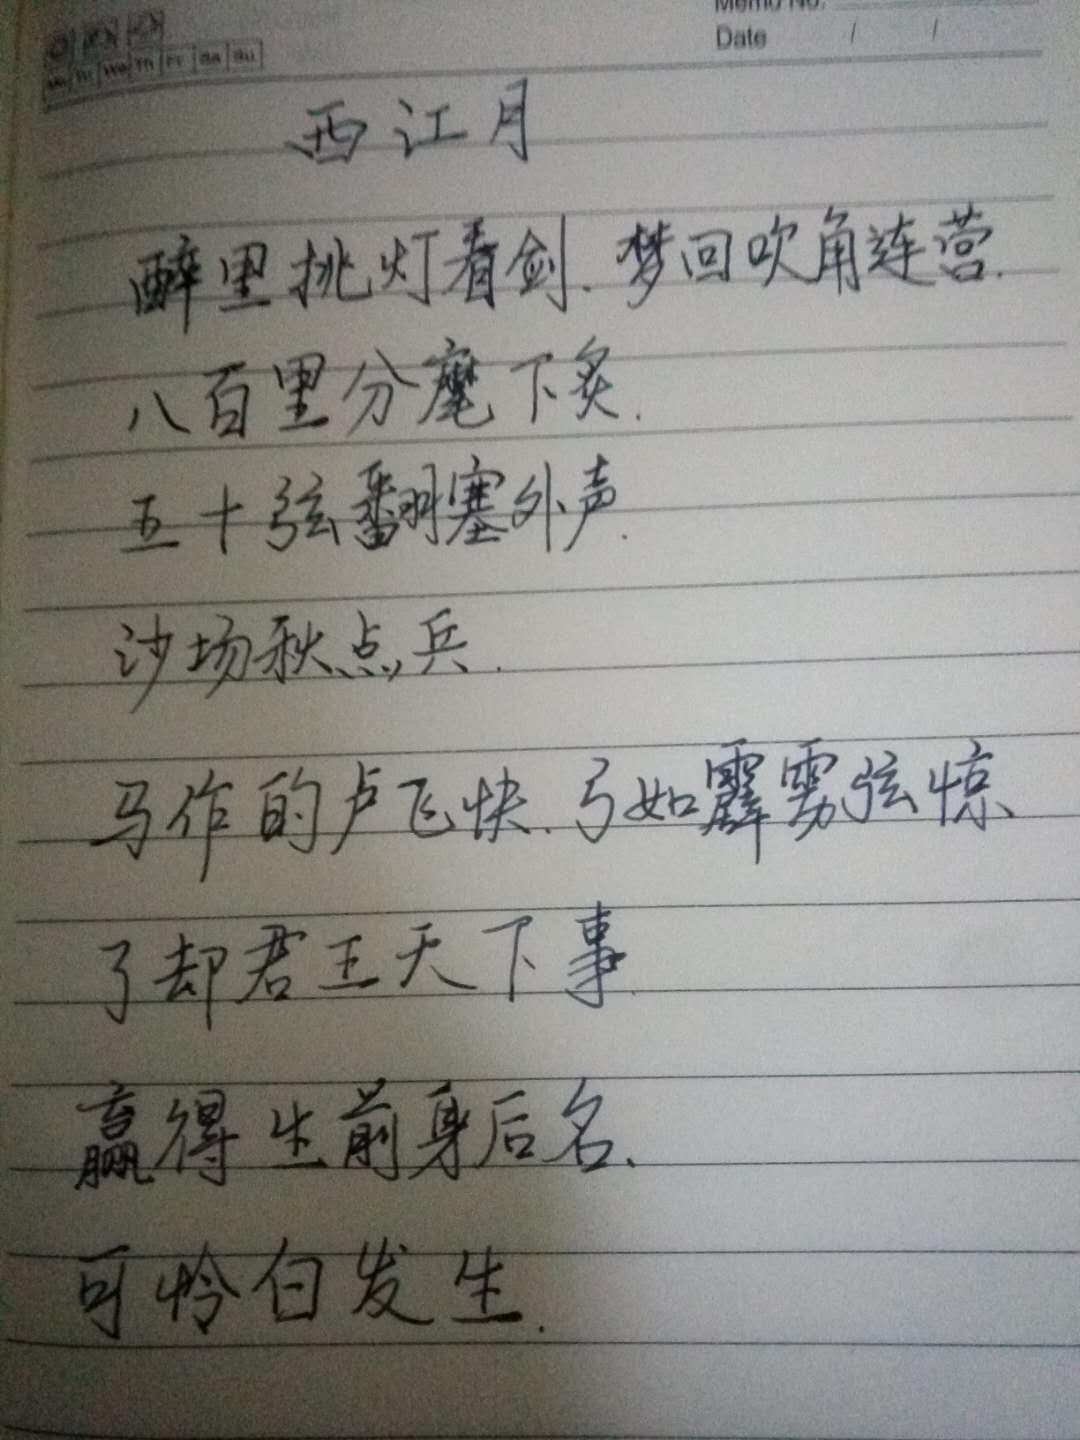 Memo No.
Date / /
Mo Tu We Th Fr Sa Su
西江月
醉里挑灯看剑.梦回吹角连营.
八百里分麾下炙.
五十弦翻塞外声.
沙场秋点兵.
马作的卢飞快.弓如霹雳弦惊.
了却君王天下事.
赢得生前身后名.
可怜白发生.